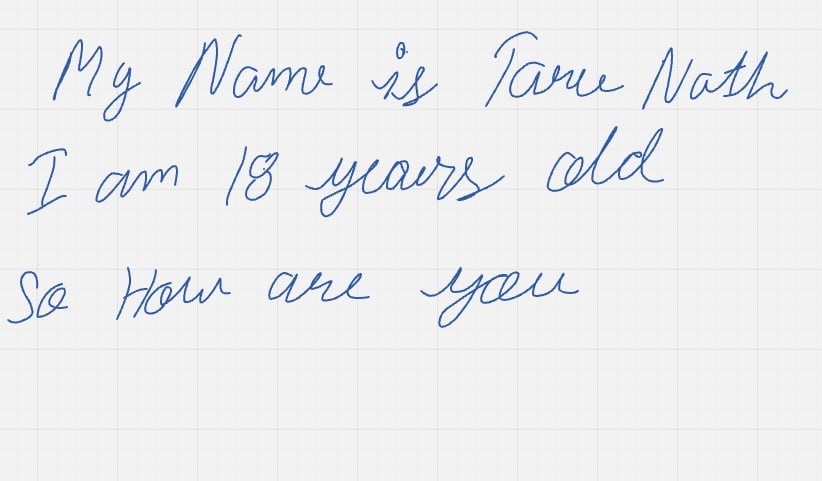 My Name is Taru Nath
I am 18 years old
So How are you